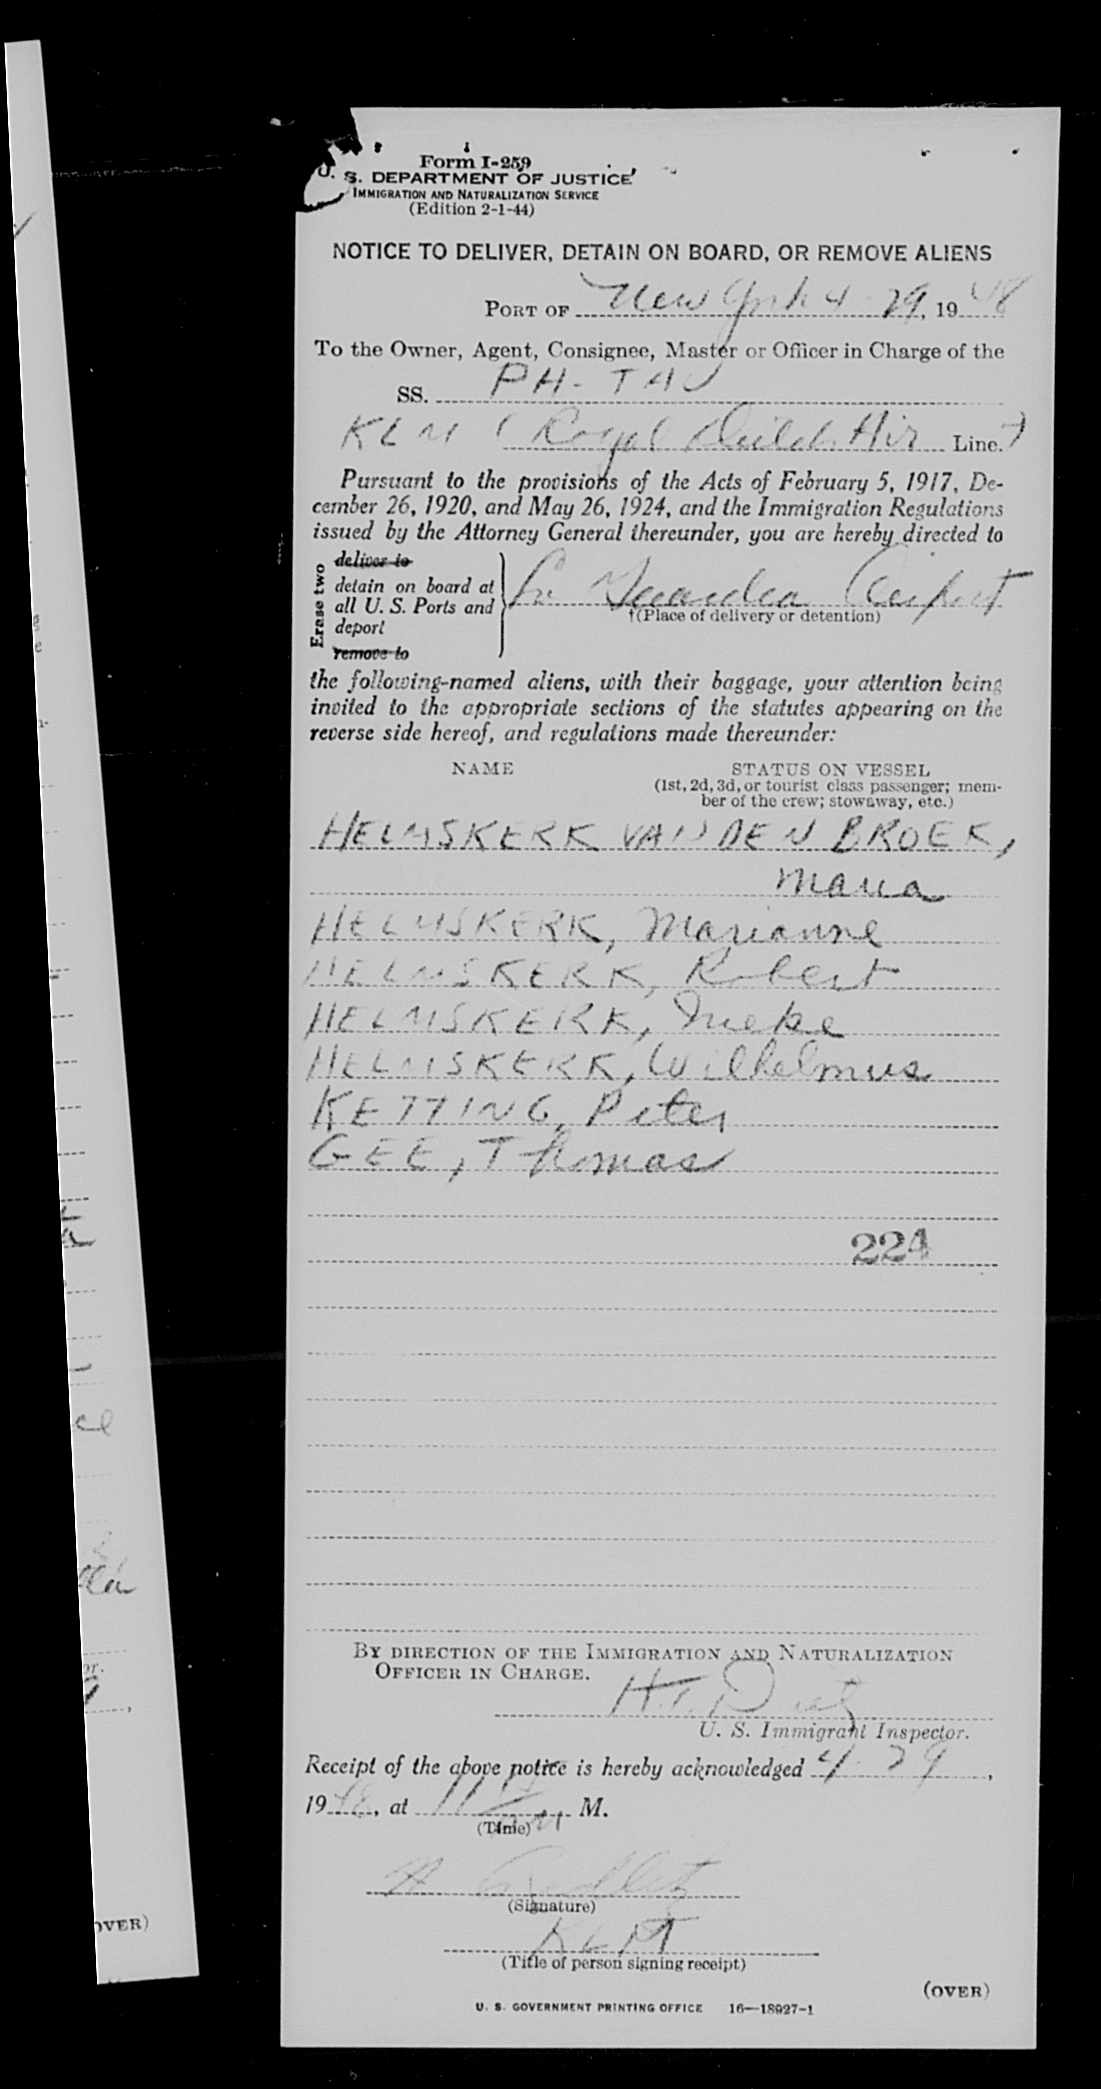 Form I-259
U. S. DEPARTMENT OF JUSTICE
IMMIGRATION AND NATURALIZATION SERVICE
(Edition 2-1-44)
NOTICE TO DELIVER, DETAIN ON BOARD, OR REMOVE ALIENS
PORT OF New York 4-29, 1948
To the Owner, Agent, Consignee, Master or Officer in Charge of the
SS. PH-TAU
KLM (Royal Dutch Air Line.)
Pursuant to the provisions of the Acts of February 5, 1917, De-
cember 26, 1920, and May 26, 1924, and the Immigration Regulations
issued by the Attorney General thereunder, you are hereby directed to
Erase two
deliver to
detain on board at
all U. S. Ports and
deport
remove to
La Guardia Airport
†(Place of delivery or detention)
the following-named aliens, with their baggage, your attention being
invited to the appropriate sections of the statutes appearing on the
reverse side hereof, and regulations made thereunder:
NAME STATUS ON VESSEL
(1st, 2d, 3d, or tourist class passenger; mem-
ber of the crew; stowaway, etc.)
HELMSKERK VAN DEN BROEK,
Maria
HELMSKERK, Marianne
HELMSKERK, Robert
HELMSKERK, Mieke
HELMSKERK, Wilhelmus
KETTING, Peter
GEE, Thomas
224
BY DIRECTION OF THE IMMIGRATION AND NATURALIZATION
OFFICER IN CHARGE.
U. S. Immigrant Inspector.
Receipt of the above notice is hereby acknowledged 4-29,
1948, at 11 M.
(Time)
(Signature)
KLM
(Title of person signing receipt)
(OVER)
U. S. GOVERNMENT PRINTING OFFICE 16—18927-1